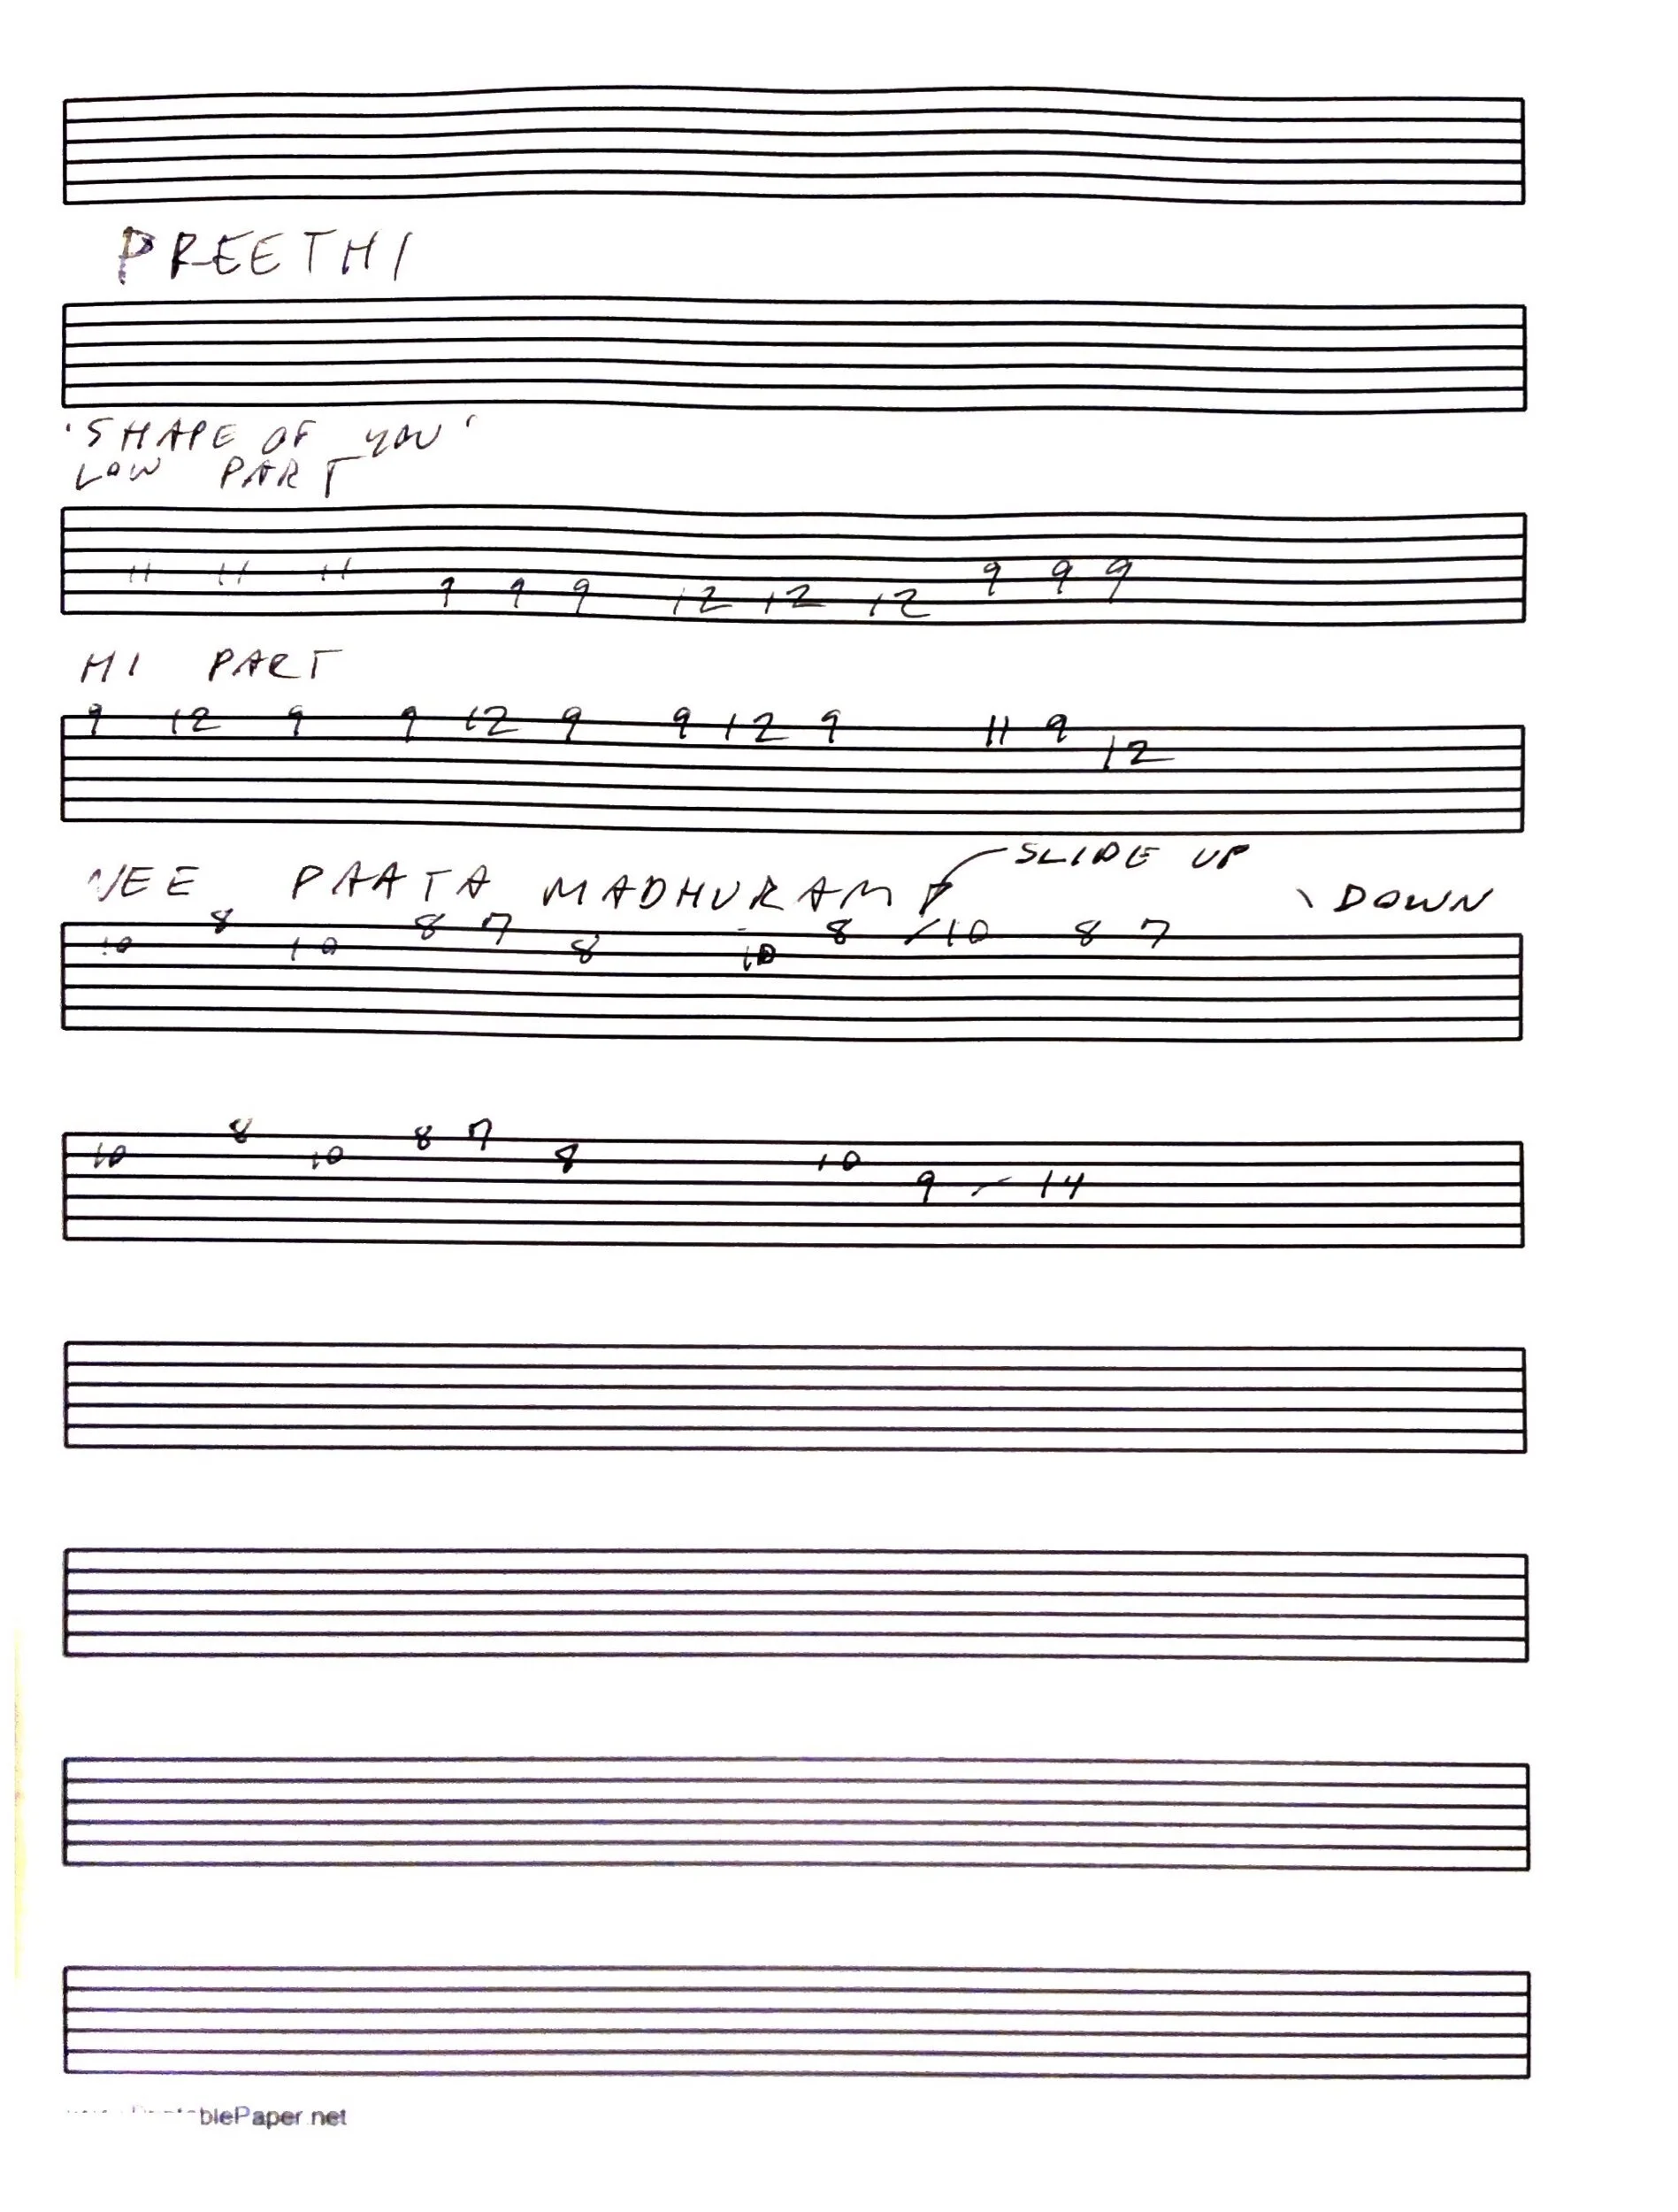 PREETHI
'SHAPE OF YOU'
LOW PART
11 11 11 9 9 9 12 12 12 9 9 9
HI PART
9 12 9 9 12 9 9 12 9 11 9 12
SLIDE UP
NEE PAATA MADHURAM \ DOWN
10 8 10 8 7 8 10 8 /10 8 7
10 8 10 8 7 8 10 9 / 14
blePaper.net